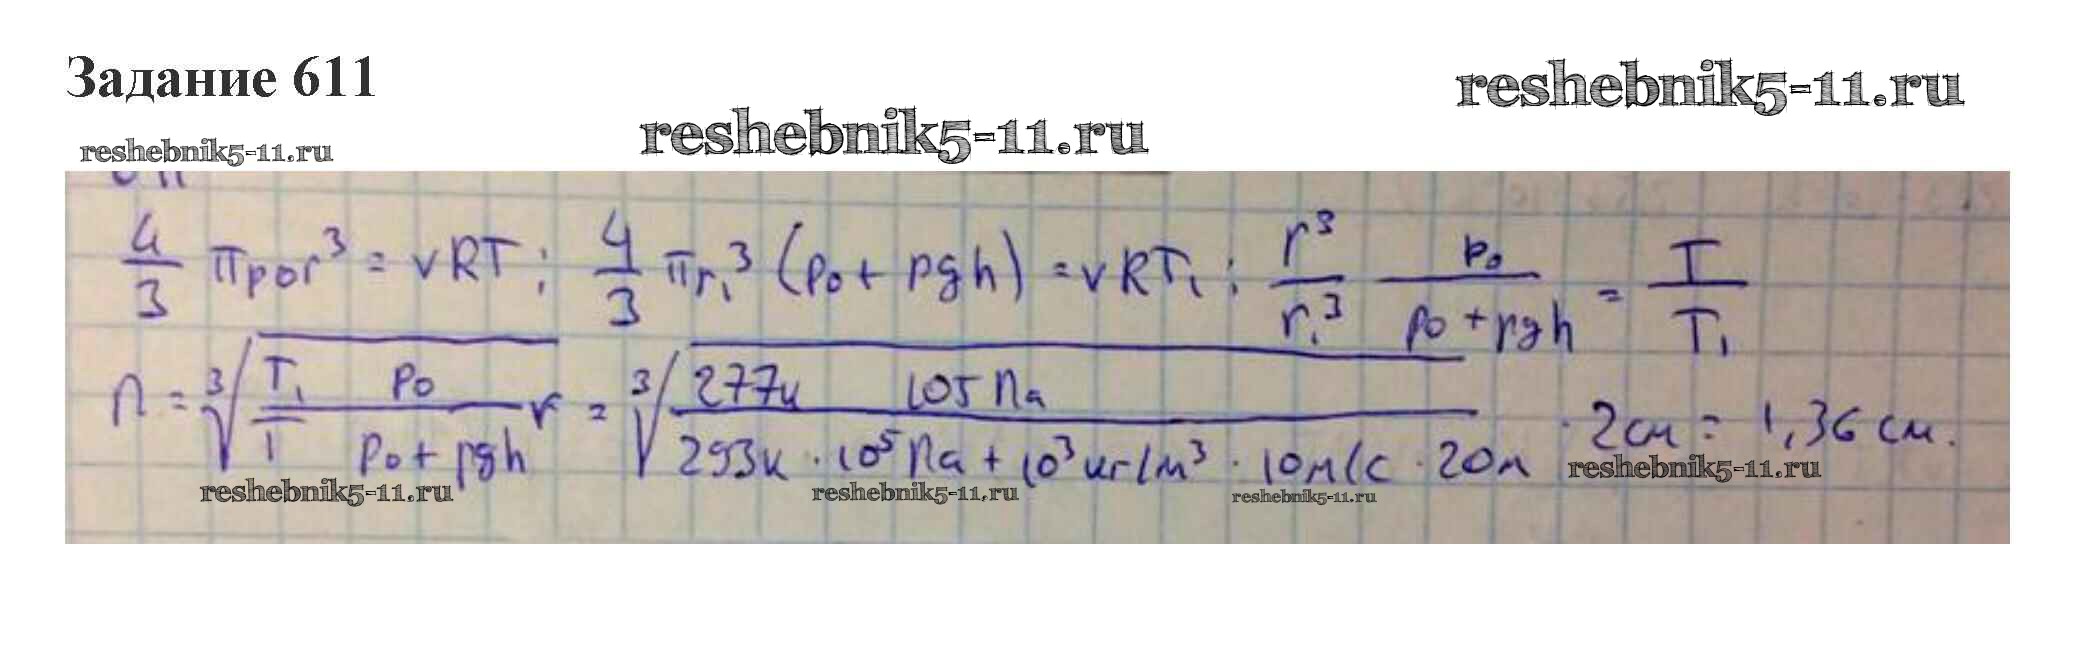 Задание 611
reshebnik5-11.ru
reshebnik5-11.ru
reshebnik5-11.ru
4/3 πp₀r³ = νRT; 4/3 πr₁³ (p₀ + ρgh) = νRT₁; r³/r₁³ p₀/(p₀ + ρgh) = T/T₁
r₁ = ³√(T₁/T p₀/(p₀ + ρgh)) r = ³√(277к 105 Па / 293к · 10⁵ Па + 10³ кг/м³ · 10м/с · 20м) · 2см = 1,36 см.
reshebnik5-11.ru
reshebnik5-11.ru
reshebnik5-11.ru
reshebnik5-11.ru